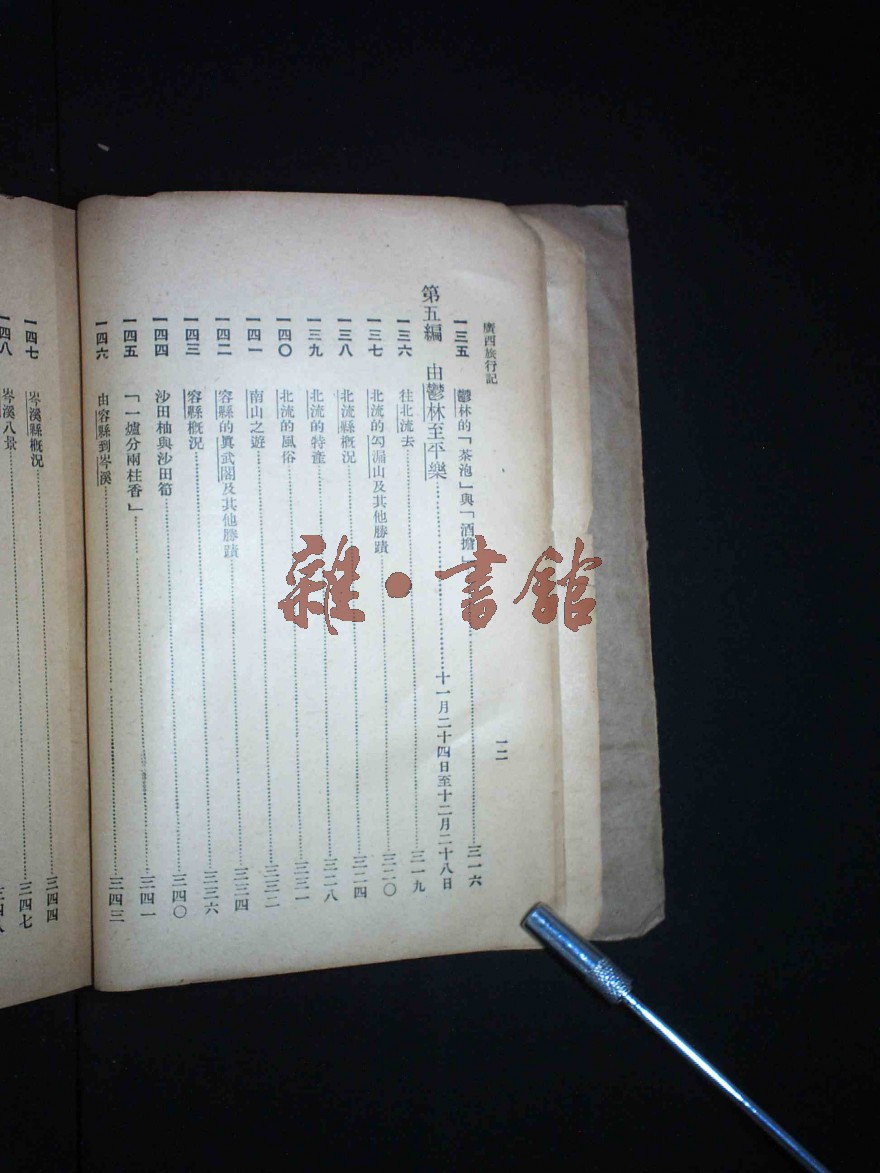 廣西旅行記 一二
一三五 鬱林的「茶泡」與「酒擔……三一六
第五編 由鬱林至平樂……十一月二十四日至十二月二十八日
一三六 往北流去……三一九
一三七 北流的勾漏山及其他勝蹟……三二〇
一三八 北流縣概況……三二四
一三九 北流的特產……三二八
一四〇 北流的風俗……三三一
一四一 南山之遊……三三二
一四二 容縣的眞武閣及其他勝蹟……三三四
一四三 容縣概況……三三六
一四四 沙田柚與沙田筍……三四〇
一四五 「一爐分兩柱香」……三四一
一四六 由容縣到岑溪……三四三
一四七 岑溪縣概況……三四四
一四八 岑溪八景……三四七
雜·書館